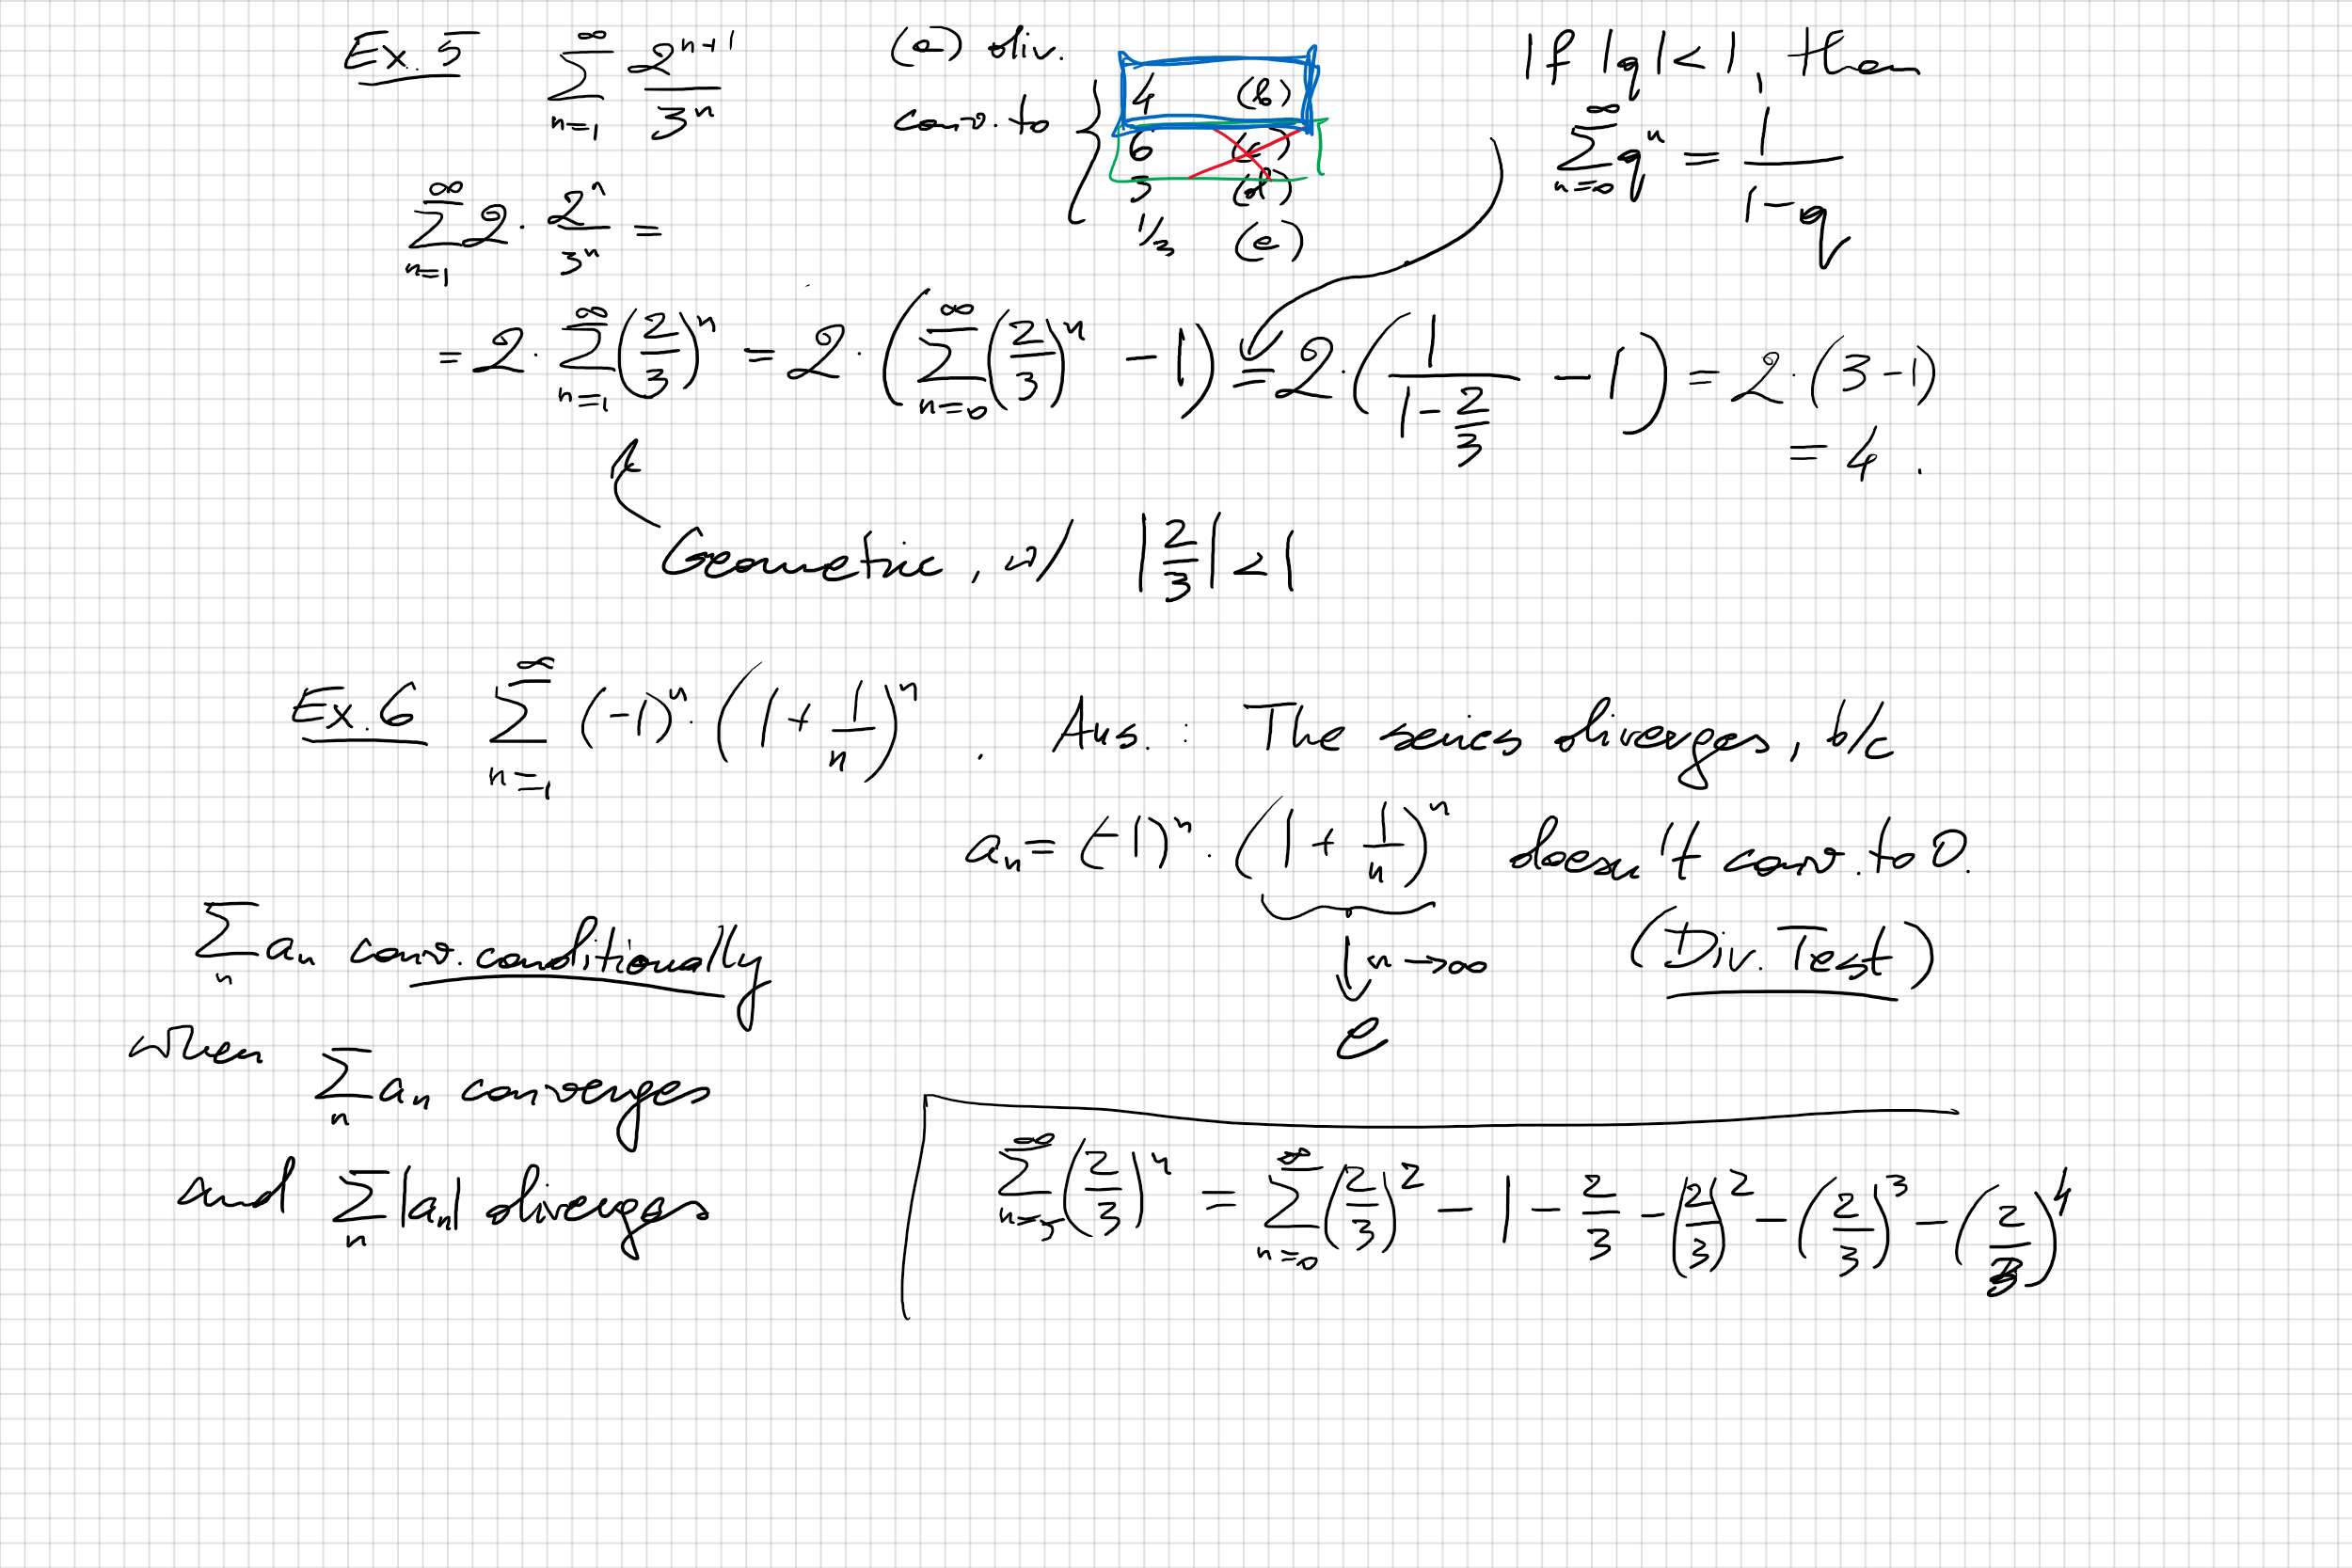 Ex. 5 ∑_{n=1}^{∞} 2^{n+1}/3^n (a) div.
conv. to { 4 (b)
6 (c)
3 (d)
1/3 (e)
If |q| < 1, then
∑_{n=0}^{∞} q^n = 1/(1-q)
∑_{n=1}^{∞} 2 · 2^n/3^n =
= 2 · ∑_{n=1}^{∞} (2/3)^n = 2 · (∑_{n=0}^{∞} (2/3)^n - 1) = 2 · (1/(1 - 2/3) - 1) = 2 · (3-1)
= 4 .
Geometric, w/ |2/3| < 1
Ex. 6 ∑_{n=1}^{∞} (-1)^n · (1 + 1/n)^n . Ans. : The series diverges, b/c
a_n = (-1)^n · (1 + 1/n)^n doesn't conv. to 0.
↓ n → ∞
e
(Div. Test)
∑_n a_n conv. conditionally
when ∑_n a_n converges
and ∑_n |a_n| diverges
∑_{n=5}^{∞} (2/3)^n = ∑_{n=0}^{∞} (2/3)^2 - 1 - 2/3 - (2/3)^2 - (2/3)^3 - (2/3)^4